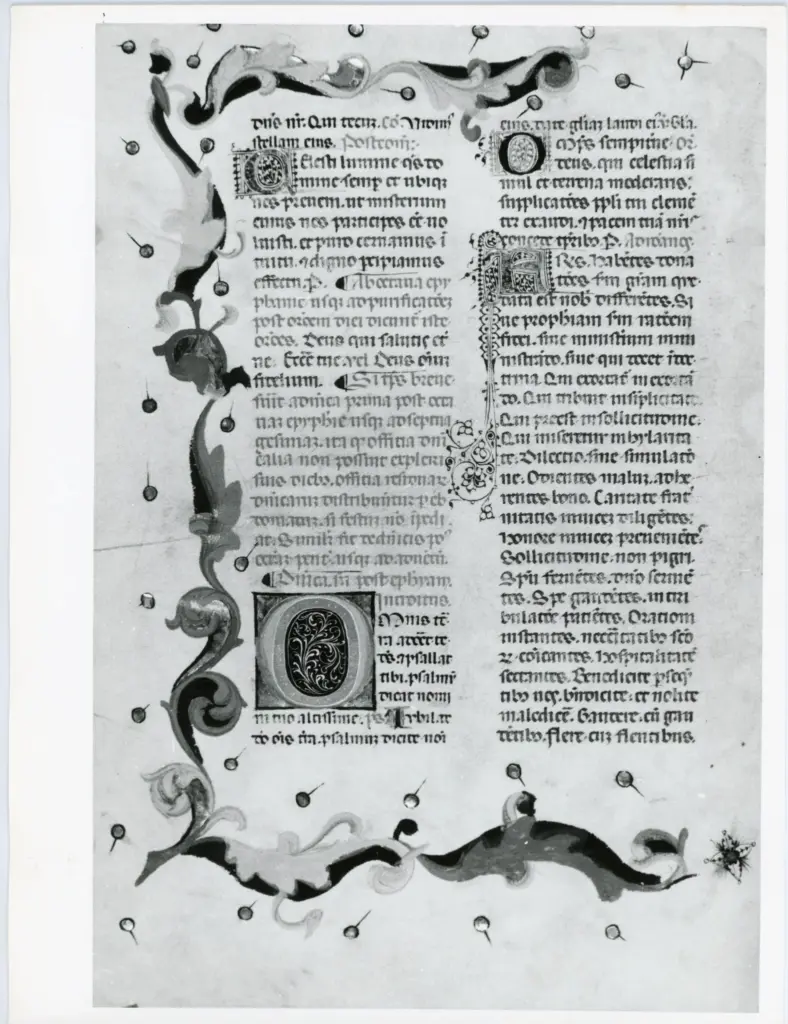 dn̄s nr̄. Qui tecuȝ. Cō. Vidim᷒
stellam eius. Postcom̄.
Celesti lumine qs̄ do
mine semꝑ et ubiqȝ
nos preueni. ut misterium
cuius nos participes eē uo
luisti. et puro cernamus ī
tuitu. ⁊ digno ꝑcipiamus
effectu. P. Ab octaua epy
phanie usqȝ ad purificatōeȝ
post orōem diei dicunt᷑ iste
orōes. Deus qui salutis et̄
ne. Eccl̄e tue. vel Deus oīuȝ
fidelium. Si tp̄s breue
fuit a dn̄ica prima post octa
uaȝ epyphie usqȝ ad septua
gesimaȝ. ita qꝫ officia domī
calia non possint expleri
suis dieb᷒. officia
dn̄icaruȝ distribuunt᷑ ꝑ eb
domadaȝ. si festuȝ nō īpedi
at. Simili᷑ fit de dn̄icis post
octaȝ pent̄. usqȝ ad aduentū.
Dn̄ica. ij. post epyphiam.
Introitus.
Omnis ter̄
ra adoret te
ds̄ ⁊ psallat
tibi. psalmū
dicat nomi
ni tuo altissime. ps̄ Iubilate
deo oīs trā. psalmuȝ dicite noī
eius. date gliaȝ laudi ei᷒. Gl̄a.
Omps̄ sempitne Or̄.
deus. qui celestia si
mul et terrena moderaris:
supplicatōes ppl̄i tui clemē
ter exaudi. ⁊ pacem tuā nr̄is
concede tpr̄ib᷒. P. Ad romāos.
Frēs. Habētes dona
tōes. sm̄ grāam que
data est nob̄ differētes. Si
ue prophiam sm̄ ratōem
fidei. siue ministium in mi
nistrādo. siue qui docet ī doc
trina. Qui exortat᷑ in exortā
do. Qui tribuit in siplicitate.
Qui preest in sollicitudine.
Qui miseretur in hylarita
te. Dilectio. sine simulatō
ne. Odientes maluȝ. adhe
rentes bono. Caritate frat̄
nitatis inuiceȝ diligētes:
Honore inuiceȝ preuenietē.
Sollicitudine. non pigri.
Spū feruētes. dn̄o seruiē
tes. Spe gaudētes. in tri
bulatōe patiētes. Orationi
instantes. necēitatib᷒ scō
ȝ. cōicantes. Hospitalitatē
sectantes. Benedicite ꝑseqȝ
tib᷒ uos. bn̄dicite: et nolite
maledicē. Gaudere. cū gau
dētib᷒. flere. cuȝ flentibus.